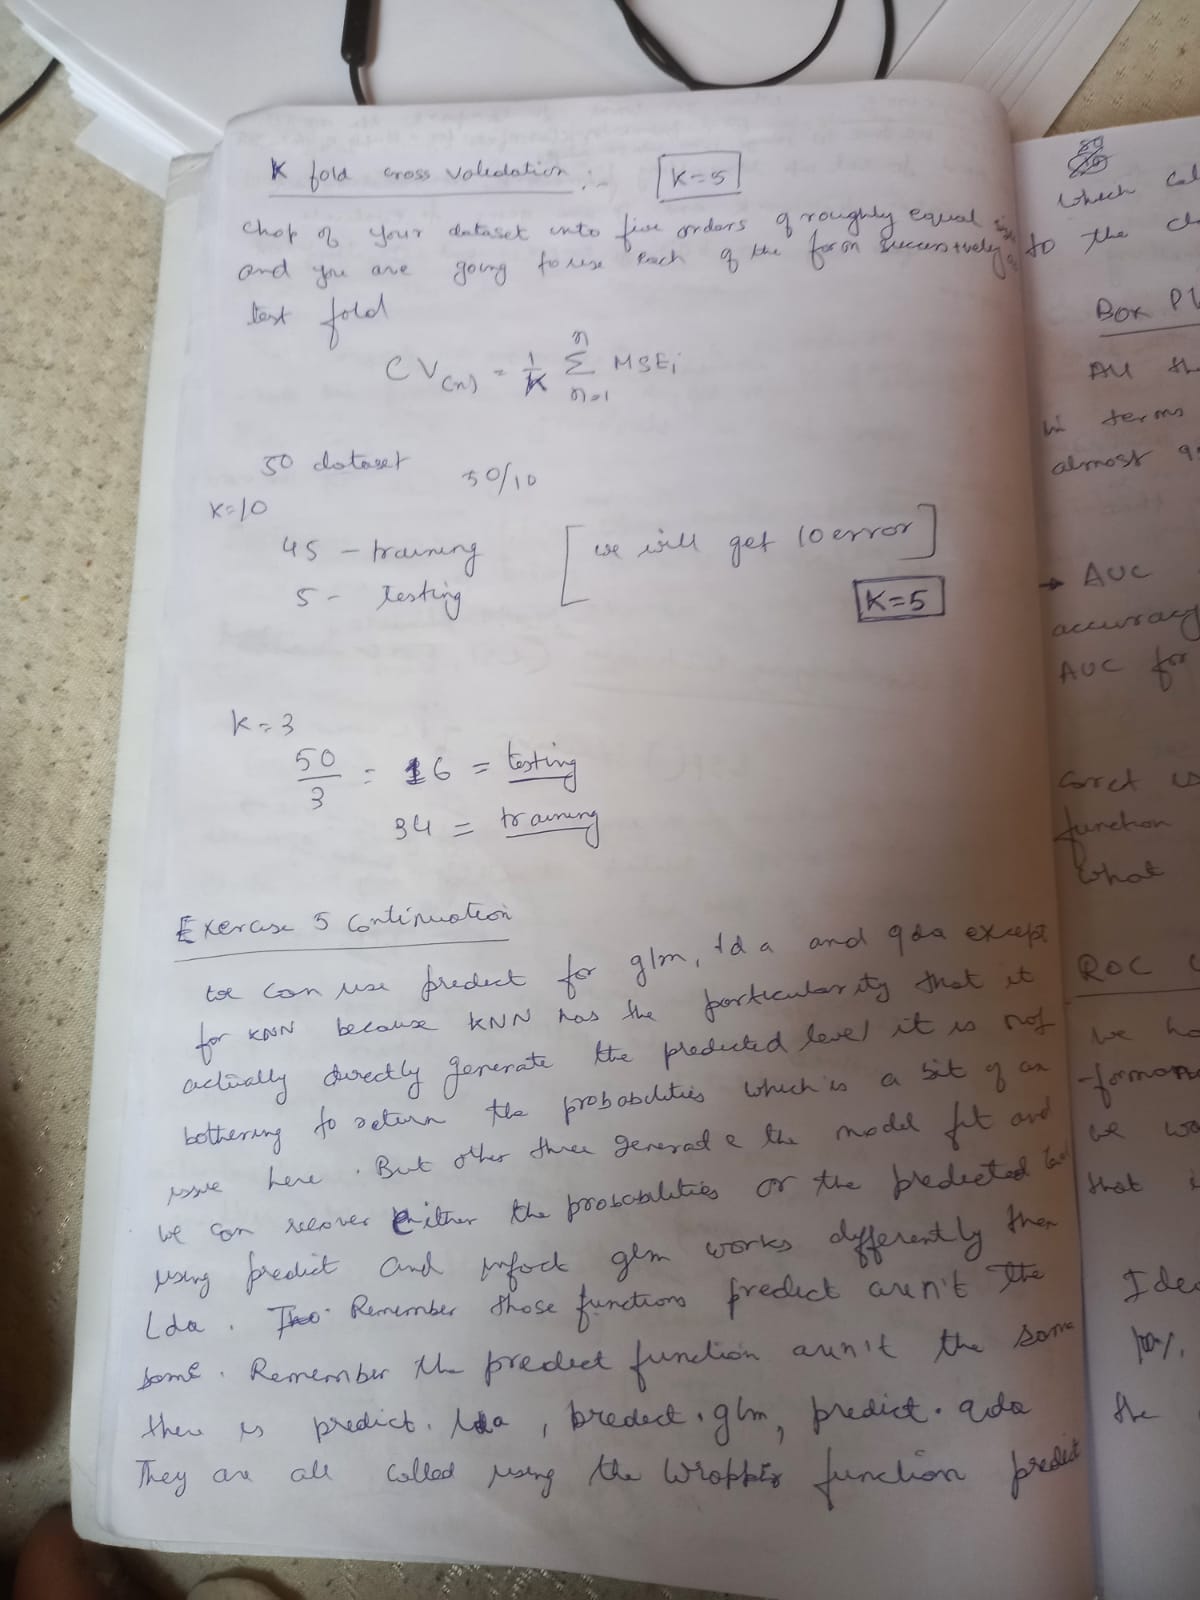 K fold cross validation :- K=5
chop of your dataset into five orders of roughly equal size
and you are going to use each of the form successively as
test fold
CV(n) = 1/K Σ n n=1 MSEi
50 dataset 50/10
K=10
45 - training [we will get 10 error]
5 - testing
K=5
K=3
50/3 = 16 = testing
34 = training
Exercise 5 continuation
we can use predict for glm, lda and qda except
for KNN because KNN has the particularity that it
actually directly generate the predicted level it is not
bothering to return the probabilities which is a bit of an
issue here. But other three generate the model fit and
we can recover either the probabilities or the predicted
using predict and infact glm works differently then
Lda. Remember those functions predict aren't the
same. Remember the predict function aren't the same
there is predict.lda, predict.glm, predict.qda
They are all called using the wrapper function predict
50
which
to the
Box Pl
All the
in terms
almost
→ AUC
accuracy
AUC for
is
function
what
ROC
we
we
that
Idea
100%.
the